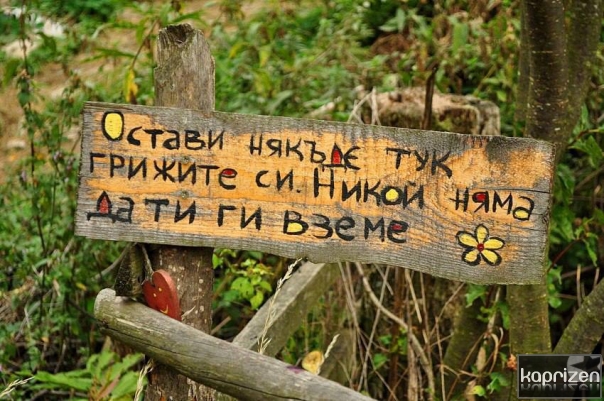 Остави някъде тук
грижите си. Никой няма
да ти ги вземе
kaprizen